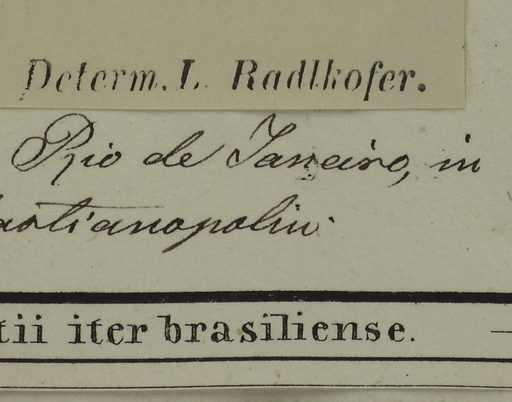 Determ. L. Radlkofer.
Rio de Janeiro, in
astianopolin.
tii iter brasiliense.